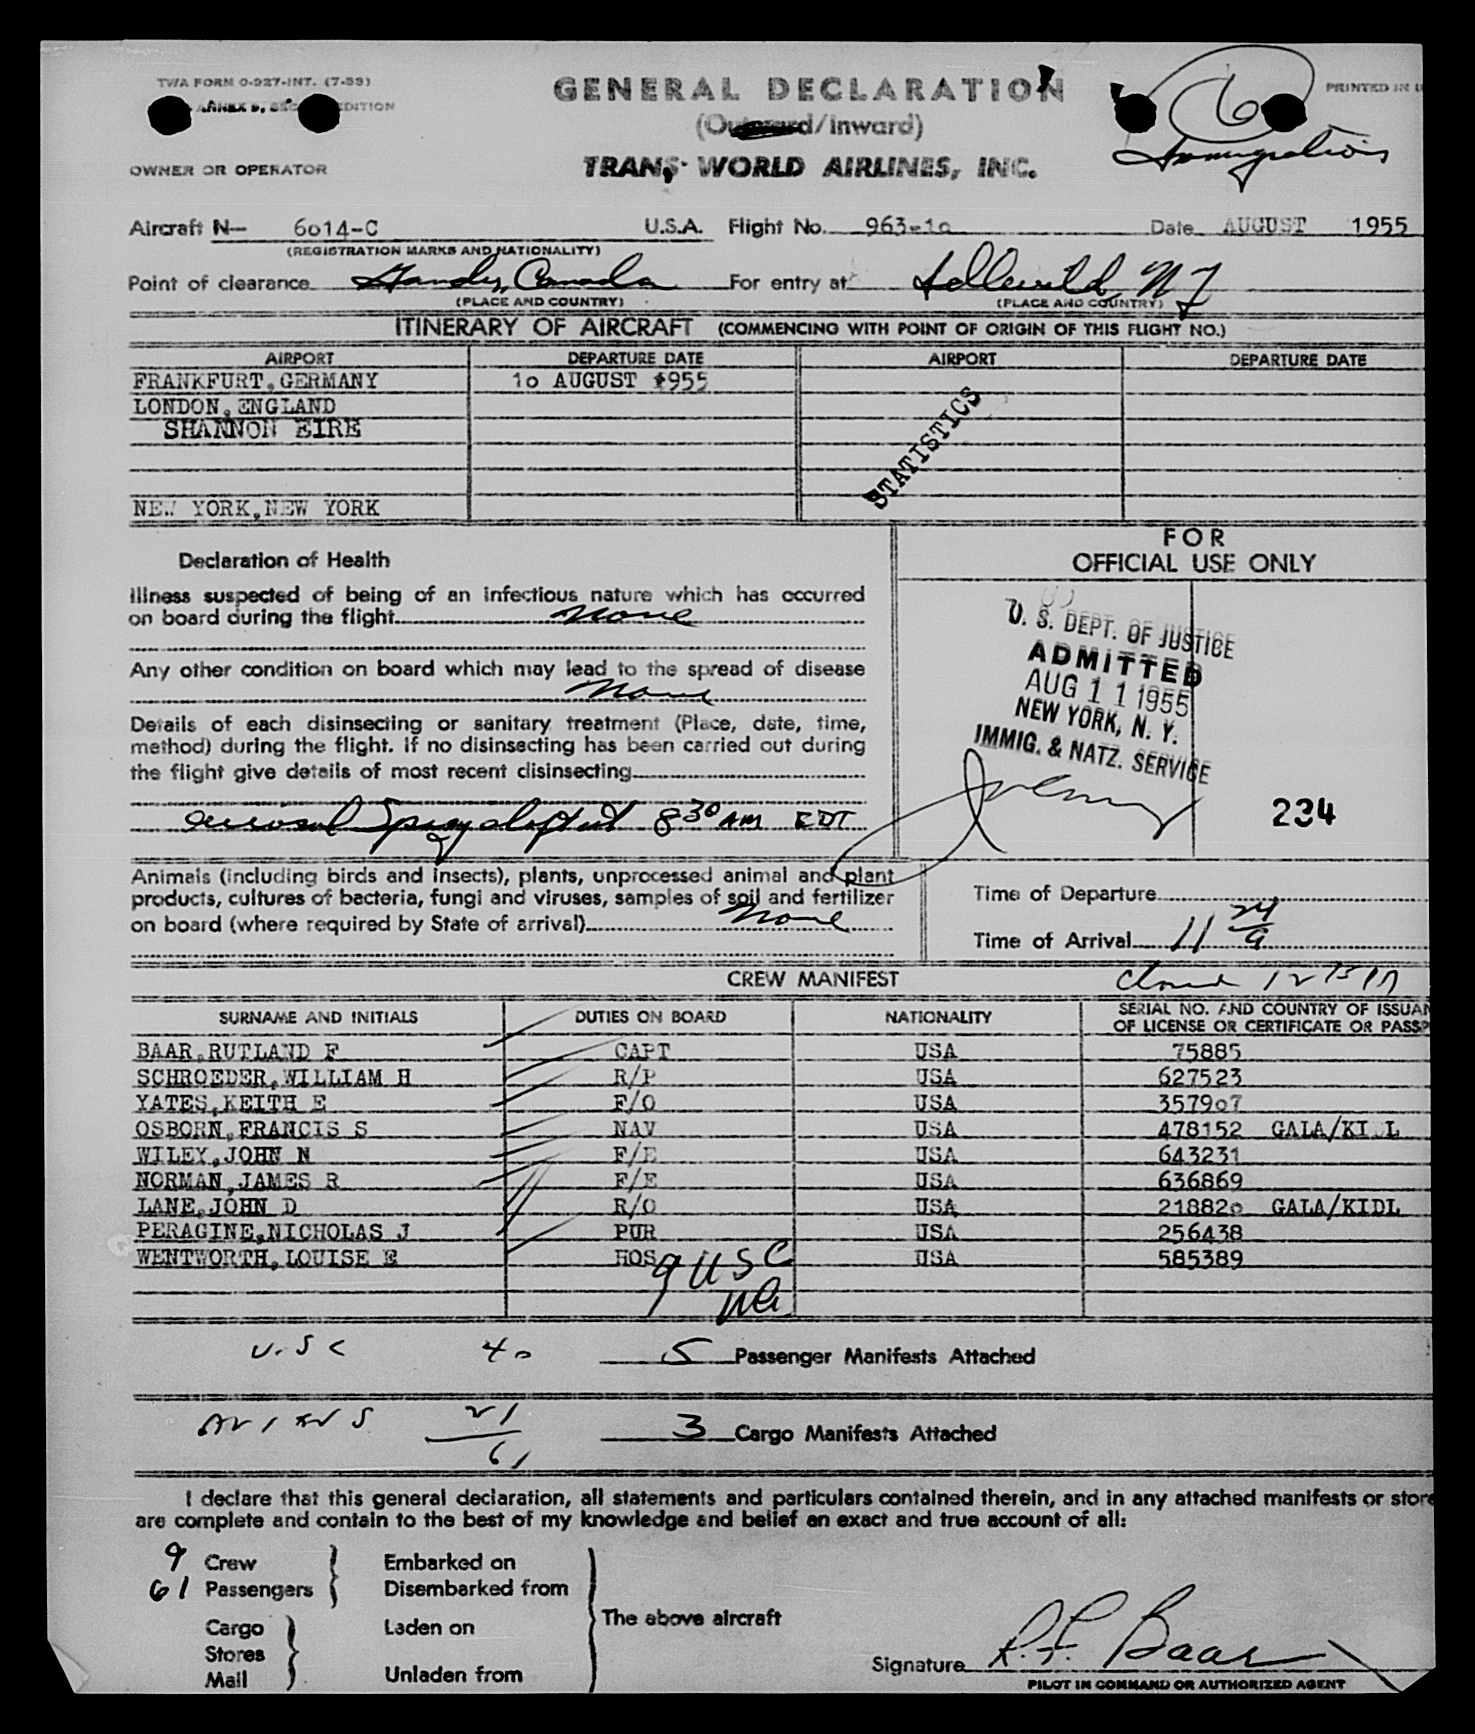 TWA FORM O-927-INT. (7-53)
ANNEX 9, EDITION
PRINTED IN U
GENERAL DECLARATION
(Outward/Inward)
6
Immigration
OWNER OR OPERATOR
TRANS WORLD AIRLINES, INC.
Aircraft N- 6o14-C U.S.A. Flight No. 963-1o Date AUGUST 1955
(REGISTRATION MARKS AND NATIONALITY)
Point of clearance Gander, Canada For entry at Idlewild, NY
(PLACE AND COUNTRY) (PLACE AND COUNTRY)
ITINERARY OF AIRCRAFT (COMMENCING WITH POINT OF ORIGIN OF THIS FLIGHT NO.)
AIRPORT DEPARTURE DATE AIRPORT DEPARTURE DATE
FRANKFURT,GERMANY 1o AUGUST 1955
LONDON,ENGLAND
SHANNON EIRE
STATISTICS
NEW YORK,NEW YORK
FOR
OFFICIAL USE ONLY
Declaration of Health
Illness suspected of being of an infectious nature which has occurred
on board during the flight None
Any other condition on board which may lead to the spread of disease
None
Details of each disinsecting or sanitary treatment (Place, date, time,
method) during the flight. If no disinsecting has been carried out during
the flight give details of most recent disinsecting
aerosol Spray 8 30 AM EDT
U. S. DEPT. OF JUSTICE
ADMITTED
AUG 11 1955
NEW YORK, N. Y.
IMMIG. & NATZ. SERVICE
234
Animals (including birds and insects), plants, unprocessed animal and plant
products, cultures of bacteria, fungi and viruses, samples of soil and fertilizer
on board (where required by State of arrival) None
Time of Departure
Time of Arrival 11 24 a
CREW MANIFEST
SURNAME AND INITIALS DUTIES ON BOARD NATIONALITY SERIAL NO. AND COUNTRY OF ISSUAN
OF LICENSE OR CERTIFICATE OR PASSP
BAAR,RUTLAND F CAPT USA 75885
SCHROEDER,WILLIAM H R/P USA 627523
YATES,KEITH E F/O USA 3579o7
OSBORN,FRANCIS S NAV USA 478152 GALA/KIDL
WILEY,JOHN N F/E USA 643231
NORMAN,JAMES R F/E USA 636869
LANE,JOHN D R/O USA 21882o GALA/KIDL
PERAGINE,NICHOLAS J PUR USA 256438
WENTWORTH,LOUISE E HOS USA 585389
9 USC
U.S C 40 5 Passenger Manifests Attached
ALIENS 21 3 Cargo Manifests Attached
61
I declare that this general declaration, all statements and particulars contained therein, and in any attached manifests or store
are complete and contain to the best of my knowledge and belief an exact and true account of all:
9 Crew Embarked on
61 Passengers Disembarked from
The above aircraft
Cargo Laden on
Stores
Mail Unladen from
Signature R. F. Baar
PILOT IN COMMAND OR AUTHORIZED AGENT